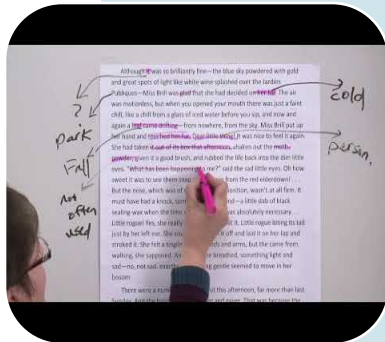 Although it was so brilliantly fine—the blue sky powdered with gold
and great spots of light like white wine splashed over the Jardins
Publiques—Miss Brill was glad that she had decided on her fur. The air
was motionless, but when you opened your mouth there was just a faint
chill, like a chill from a glass of iced water before you sip, and now and
again a leaf came drifting—from nowhere, from the sky. Miss Brill put up
her hand and touched her fur. Dear little thing! It was nice to feel it again.
She had taken it out of its box that afternoon, shaken out the moth-
powder, given it a good brush, and rubbed the life back into the dim little
eyes. "What has been happening to me?" said the sad little eyes. Oh how
sweet it was to see them snap from the red eiderdown! . . .
But the nose, which was of position, wasn't at all firm. It
must have had a knock, —a little dab of black
sealing-wax when the time absolutely necessary. . .
Little rogue! Yes, she really it. Little rogue biting its tail
just by her left ear. She it off and laid it on her lap and
stroked it. She felt a hands and arms, but the came from
walking, she supposed. breathed, something light and
sad—no, not sad, gentle seemed to move in her
bosom
There were a this afternoon, far more than last
?
park
Fall
not
often
used
cold
person